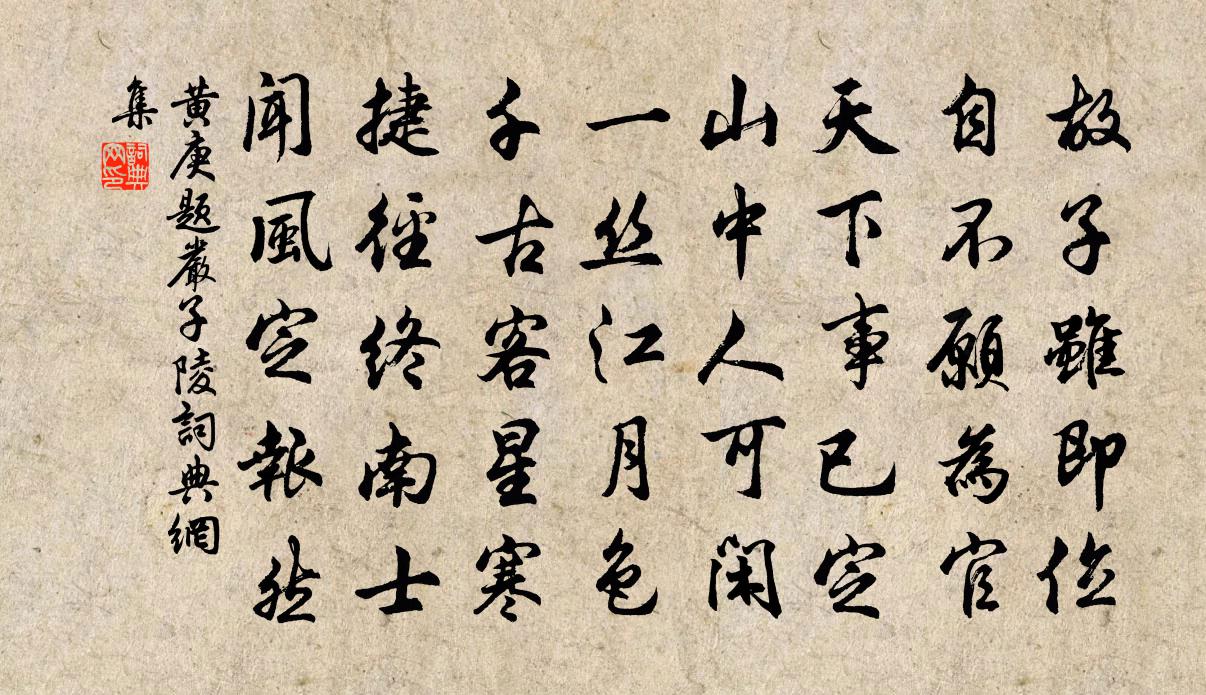 故子雖即位
自不願為官
天下事已定
山中人可閑
一丝江月色
千古客星寒
捷徑終南士
聞風定報然
黃庚題嚴子陵詞典網
集
詞典网印